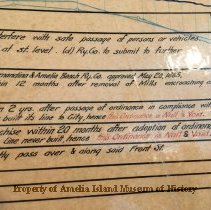 terfere with safe passage of persons or vehicles.
at st. level. (d) Ry.Co. to submit to further
& Amelia Beach Ry. Co. approved May 20,
in 12 months after removal of Mills
2 yrs. after passage of ordinance in compliance
built its line to City, hence this Ordinance is Null & Void.
chise within 20 months after adoption of
Line never built, hence this Ordinance is Null & Void
ty pass over & along said Front St.
Property of Amelia Island Museum of History